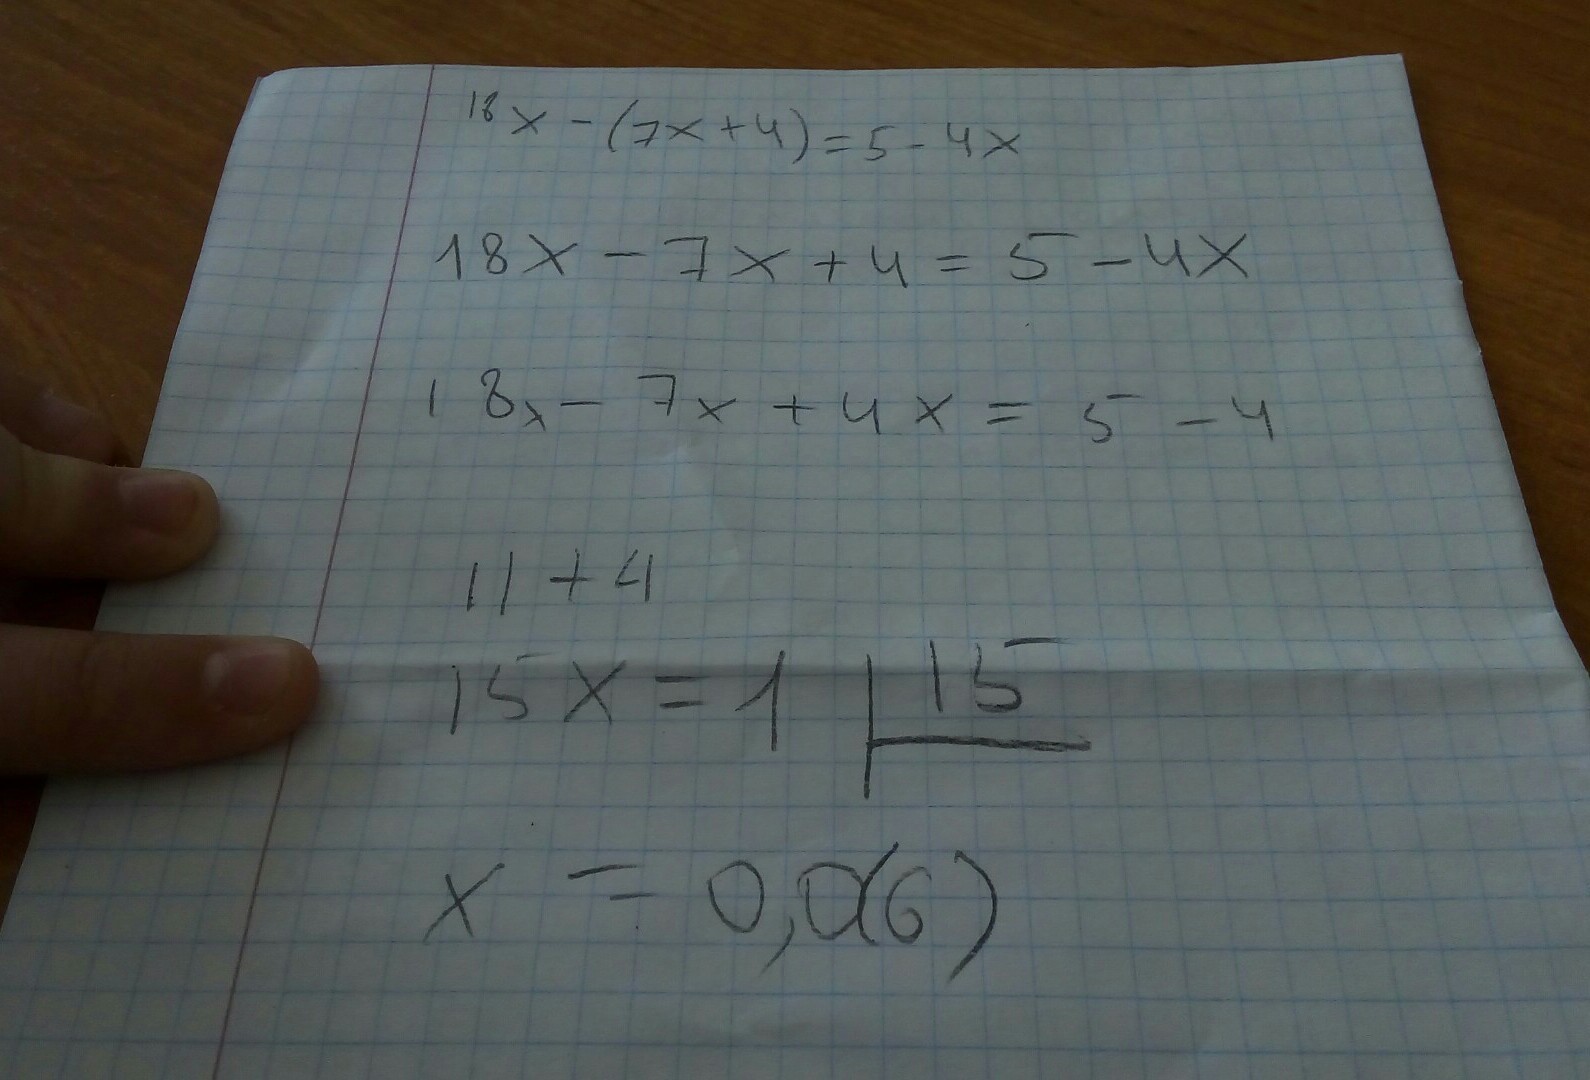 18x - (7x + 4) = 5 - 4x
18x - 7x + 4 = 5 - 4x
18x - 7x + 4x = 5 - 4
11 + 4
15x = 1 | 15
x = 0,0(6)